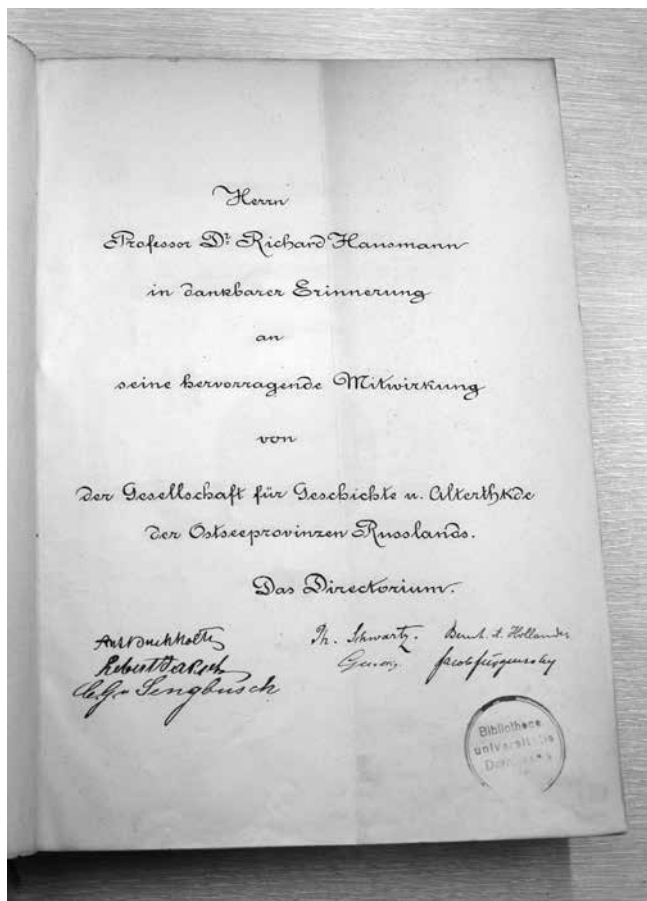 Herrn
Professor Dr. Richard Hausmann
in dankbarer Erinnerung
an
seine hervorragende Mitwirkung
von
der Gesellschaft für Geschichte u. Alterthkde
der Ostseeprovinzen Russlands.
Das Directorium.
Ant Buchholtz Ph. Schwartz. Bernh. A. Hollander
Robert Jaksch
C. G. v Sengbusch
Bibliotheca
universitatis